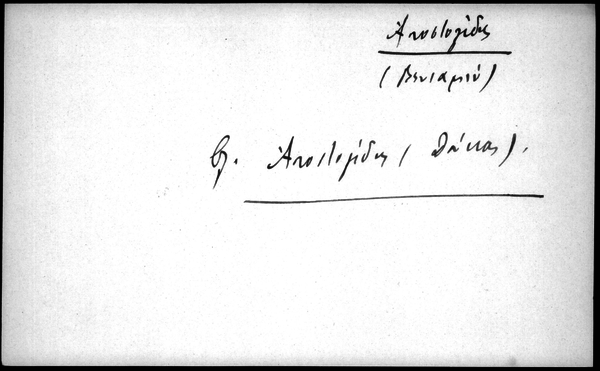 Ἀποστολίδης
(Βενιαμίν)
βλ. Ἀποστολίδης (Θάνος).